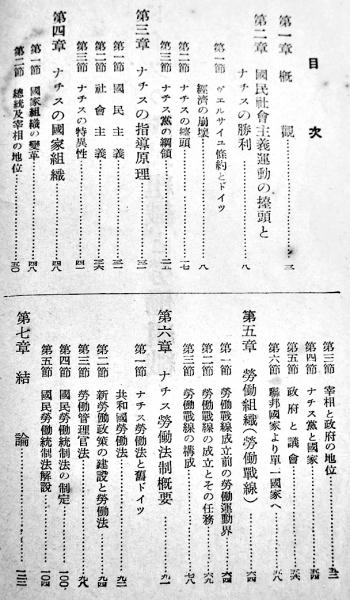 目次
第一章 概觀……………三
第二章 國民社會主義運動の擡頭と
ナチスの勝利……………八
第一節 ヴエルサイユ條約とドイツ
經濟の崩壞……………八
第二節 ナチスの擡頭……………一七
第三節 ナチス黨の綱領……………二五
第三章 ナチスの指導原理……………三一
第一節 國民主義……………三一
第二節 社會主義……………三六
第三節 ナチスの特異性……………四一
第四章 ナチスの國家組織……………四八
第一節 國家組織の變革……………四八
第二節 總統及宰相の地位……………五〇
第三節 宰相と政府の地位……………五三
第四節 ナチス黨と國家……………五四
第五節 政府と議會……………五六
第六節 聯邦國家より單一國家へ……………五八
第五章 勞働組織(勞働戰線)……………六四
第一節 勞働戰線成立前の勞働運動界……………六四
第二節 勞働戰線の成立とその任務……………六九
第三節 勞働戰線の構成……………七六
第六章 ナチス勞働法制概要……………九一
第一節 ナチス勞働法と舊ドイツ
共和國勞働法……………九一
第二節 新勞働政策の建設と勞働法……………九四
第三節 勞働管理官法……………九八
第四節 國民勞働統制法の制定……………一〇〇
第五節 國民勞働統制法解說……………一〇四
第七章 結論……………一三三